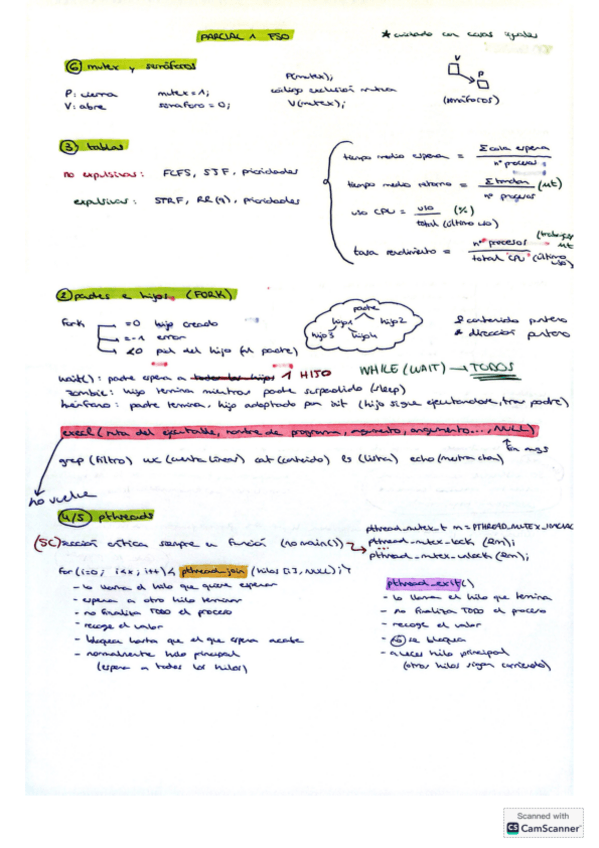 PARCIAL 1 FSO
* cuidado con casos iguales
⑥ mutex y semáforos
P: cierra mutex = 1;
V: abre semáforo = 0;
P(mutex);
código exclusión mutua
V(mutex);
V
P
(semáforos)
③ tablas
no expulsivas: FCFS, SJF, prioridades
expulsivas: STRF, RR(q), prioridades
tiempo medio espera = Σ cada espera / nº procesos
tiempo medio retorno = Σ / nº procesos (ut)
uso CPU = uso / total (último uso) (%)
tasa rendimiento = nº procesos / total CPU (último uso)
② padres e hijos (FORK)
fork =0 hijo creado
=-1 error
padre
hijo1 hijo2
hijo3 hijo4
& contenido puntero
* dirección puntero
wait(): padre espera a todos los hijos 1 HIJO WHILE(WAIT) → TODOS
zombie: hijo termina mientras padre suspendido (sleep)
huérfano: padre termina, hijo adoptado por init (hijo sigue ejecutandose, tras padre)
execl(ruta del ejecutable, nombre de programa, argumento, argumento..., NULL)
grep (filtro) wc (cuenta lineas) cat (contenido) ls (lista) echo (muestra)
no vuelve
④/5) pthreads
(SC) sección crítica siempre en función (no main())
pthread_mutex_t m = PTHREAD_MUTEX_
pthread_mutex_lock (&m);
...
pthread_mutex_unlock (&m);
for(i=0; i<x; i++){ pthread_join (hilos[i], NULL);}
- lo llama el hilo que quiere esperar
- espera a otro hilo terminar
- no finaliza TODO el proceso
- recoge el valor
- bloquea hasta que el que espera acabe
- normalmente hilo principal
(espera a todos los hilos)
pthread_exit()
- lo llama el hilo que termina
- no finaliza TODO el proceso
- recoge el valor
- no se bloquea
- a veces hilo principal
(otros hilos siguen corriendo)
Scanned with
CS CamScanner